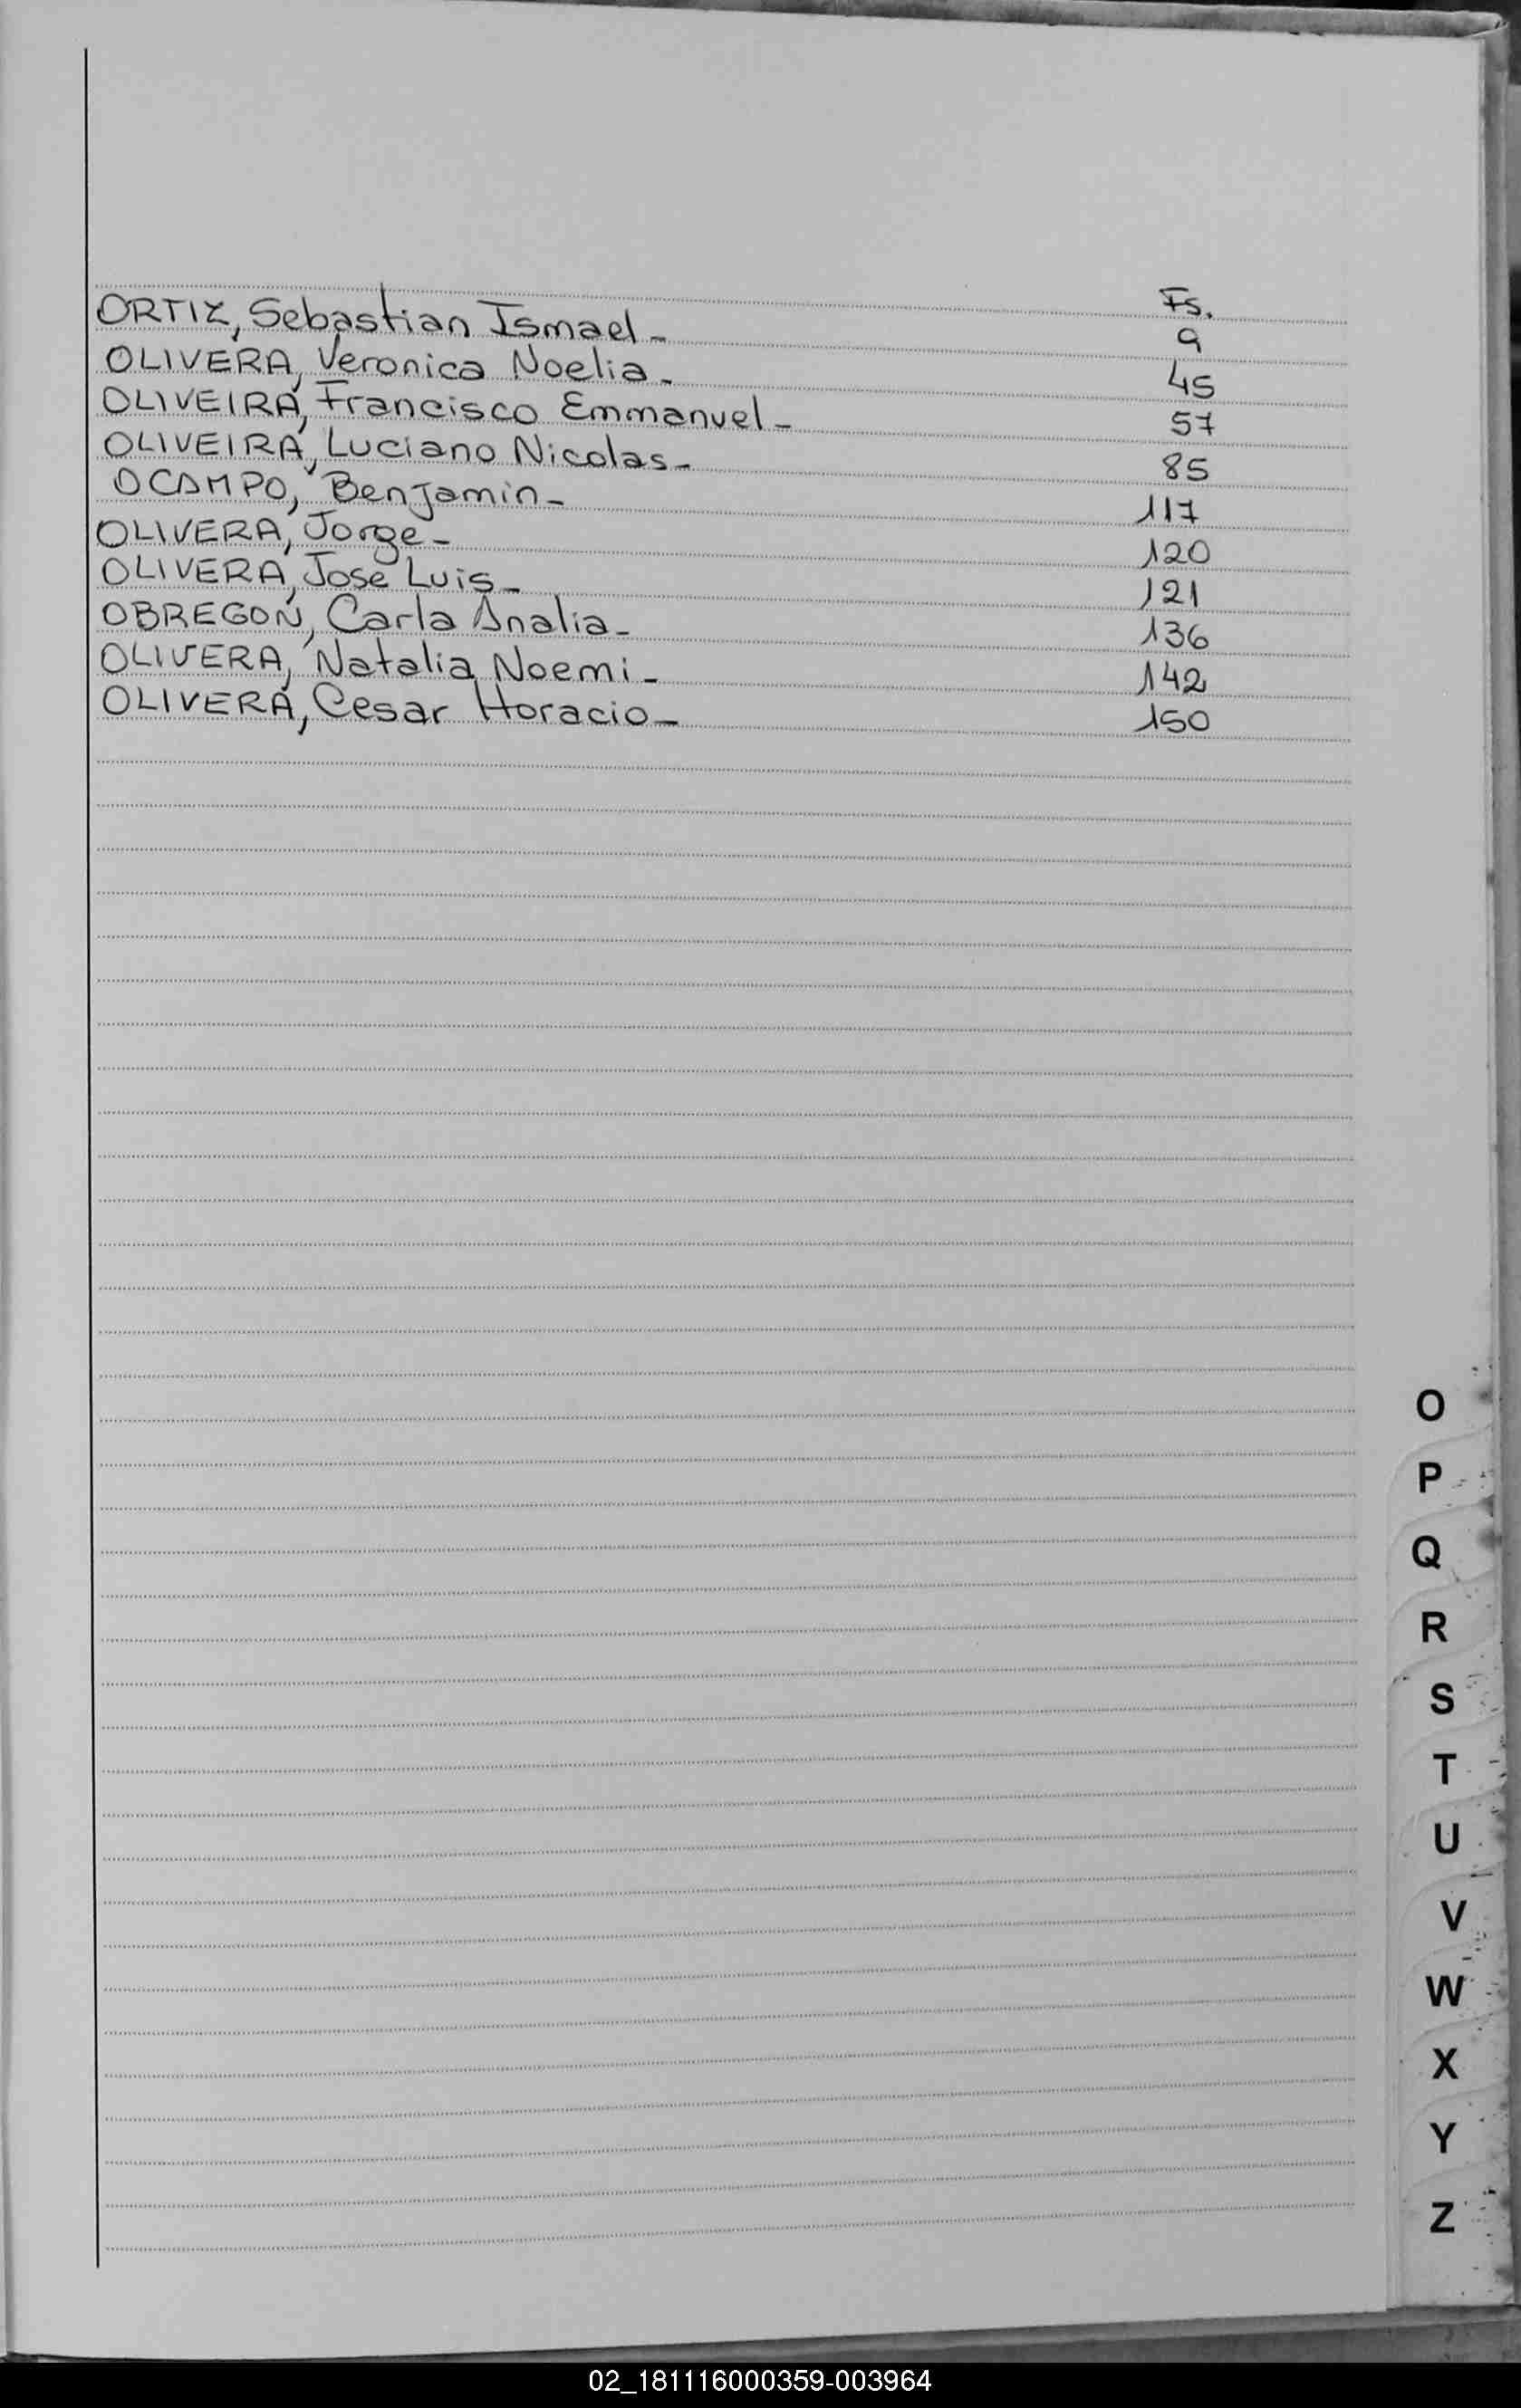 Fs.
ORTIZ, Sebastian Ismael - 9
OLIVERA, Veronica Noelia - 45
OLIVEIRA, Francisco Emmanuel - 57
OLIVEIRA, Luciano Nicolas - 85
OCAMPO, Benjamin - 117
OLIVERA, Jorge - 120
OLIVERA, Jose Luis - 121
OBREGON, Carla Analia - 136
OLIVERA, Natalia Noemi - 142
OLIVERA, Cesar Horacio - 150
O
P
Q
R
S
T
U
V
W
X
Y
Z
02_181116000359-003964